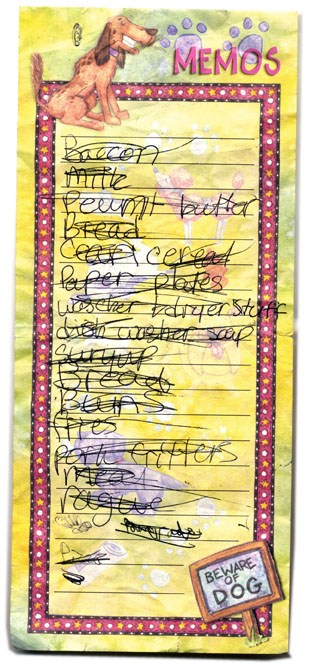 MEMOS
Baccon
Milk
Peunut butter
Bread
cereal
Paper plates
wascher & dryer stuff
dish washer soap
Bread
Beans
fries
pork fritters
Meat
Rague
BEWARE
OF
DOG